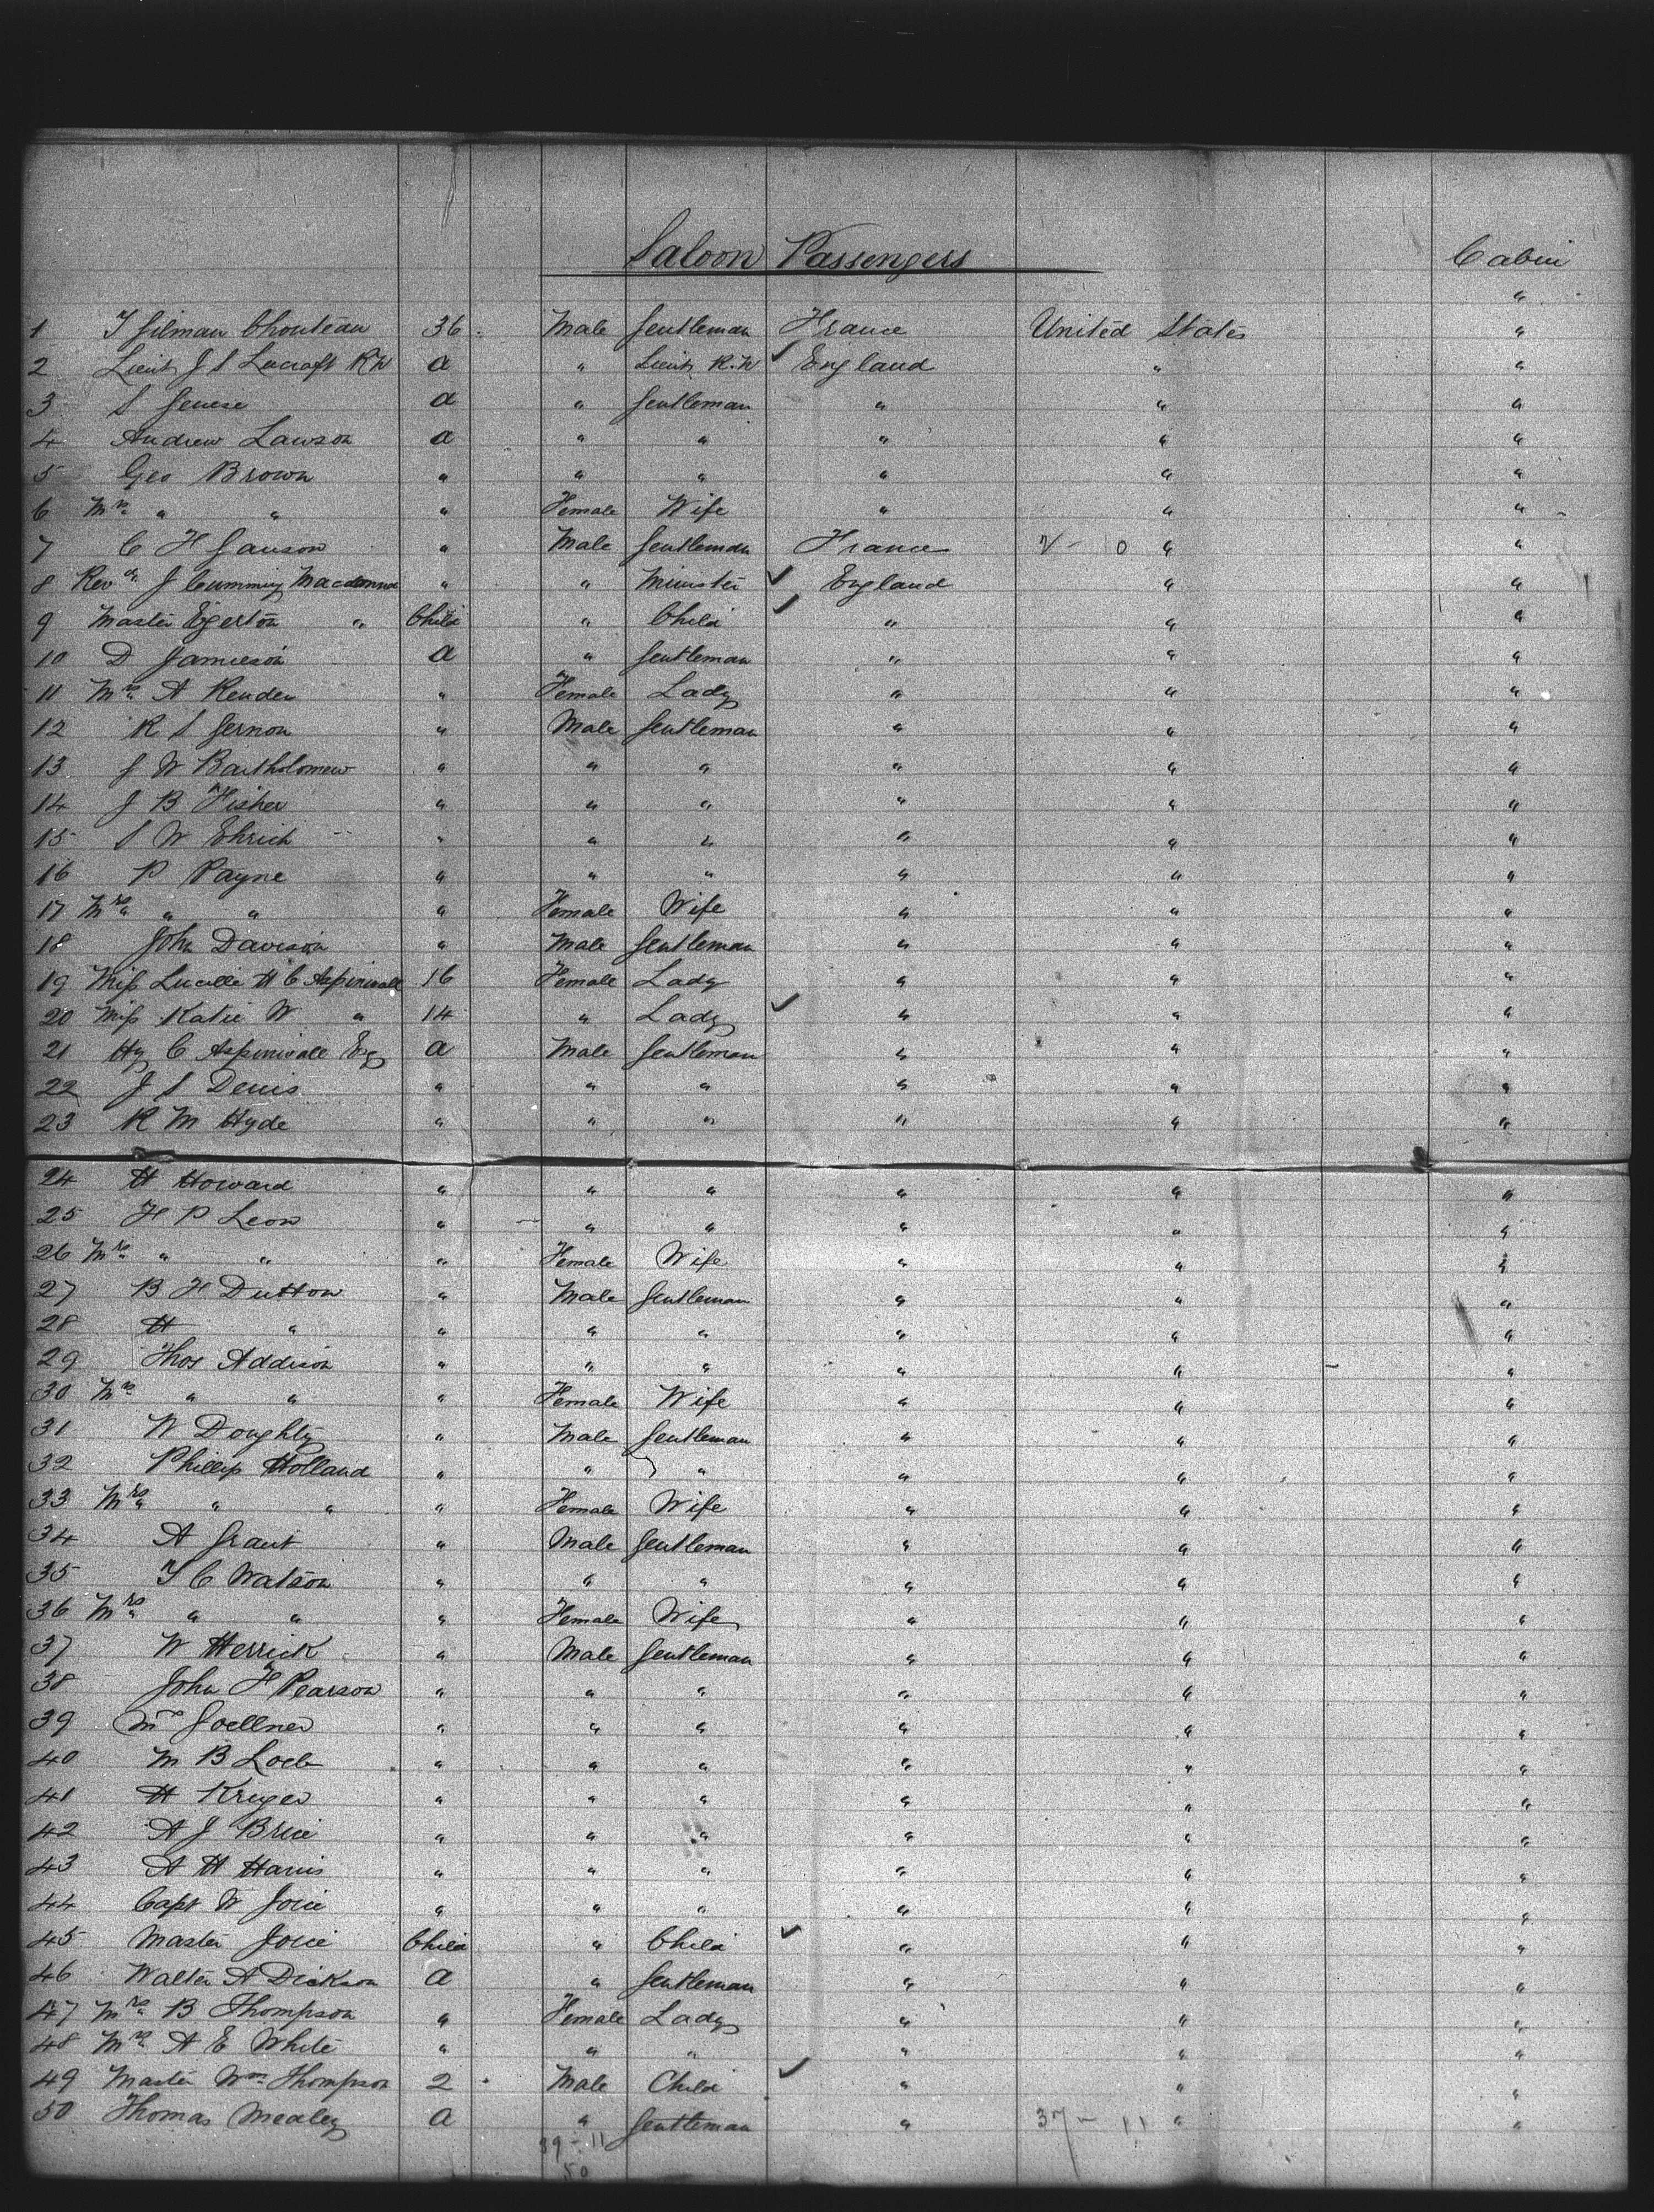 Saloon Passengers Cabin
"
1 J Gilman Chouteau 36 Male Gentleman France United States "
2 Lieut J S Lucraft RN a " Lieut R.N England " "
3 S Genese a " Gentleman " " "
4 Andrew Lawson a " " " " "
5 Geo Brown " " " " " "
6 Mrs " " " Female Wife " " "
7 C H Sauson " Male Gentleman France "
8 Revd J Cumming Macdonna " " Minister England " "
9 Master Egerton " Child " Child " " "
10 D Jamieson a " Gentleman " " "
11 Mrs A Renden " Female Lady " " "
12 R S Gernon " Male Gentleman " " "
13 J W Bartholomew " " " " " "
14 J B Fisher " " " " " "
15 S W Ehrich " " " " " "
16 P Payne " " " " " "
17 Mrs " " " Female Wife " " "
18 John Davison " Male Gentleman " " "
19 Miss Lucille H C Aspinwall 16 Female Lady " " "
20 Miss Katie W " 14 " Lady " " "
21 Hy C Aspinwall Esq a Male Gentleman " " "
22 J S Denis " " " " " "
23 R M Hyde " " " " " "
24 H Howard " " " " " "
25 H P Leon " " " " " "
26 Mrs " " " Female Wife " " "
27 B H Dutton " Male Gentleman " " "
28 H " " " " " " "
29 Thos Addison " " " " " "
30 Mrs " " " Female Wife " " "
31 W Doughty " Male Gentleman " " "
32 Phillip Holland " " " " " "
33 Mrs " " " Female Wife " " "
34 A Grant " Male Gentleman " " "
35 J C Watson " " " " " "
36 Mrs " " " Female Wife " " "
37 W Herrick " Male Gentleman " " "
38 John H Pearson " " " " " "
39 Mr Goellner " " " " " "
40 M B Loeb " " " " " "
41 H Kruger " " " " " "
42 A J Brice " " " " " "
43 A H Harris " " " " " "
44 Capt W Joice " " " " " "
45 Master Joice Child " Child " " "
46 Walter A Dickson a " Gentleman " " "
47 Mrs B Thompson " Female Lady " " "
48 Mrs A E White " " " " " "
49 Master Wm Thompson 2 Male Child " " "
50 Thomas Mealey a " Gentleman " 37 - 11 " "
39 - 11
50